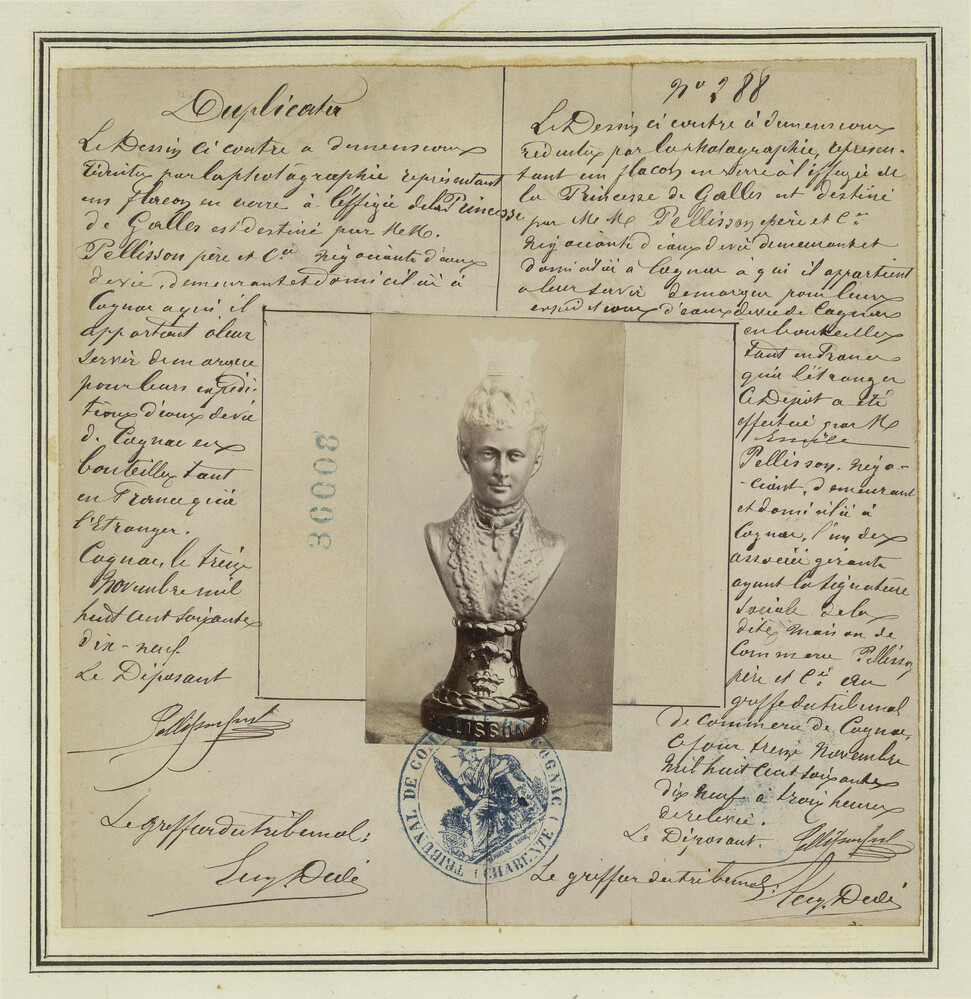 Duplicata
Le Dessin ci contre a dimensions
réduites par la photographie représentant
un flacon en verre à l'éffigie de la Princesse
de Galles est destiné par M.M.
Pellisson père et Cie négociants d'eaux
de vie, demeurant et domiciliés à
Cognac a qui il
appartient a leur
servir de marque
pour leurs expédi-
tions d'eaux de vie
de Cognac en
bouteilles tant
en France qu'à
l'Etranger.
Cognac, le treize
Novembre mil
huit cent soixante
dix-neuf.
Le Déposant
Le greffier du tribunal:
No 288
Le Dessin ci contre à dimensions
réduites par la photographie, représen-
tant un flacon en verre à l'éffigie de
la Princesse de Galles est destiné
par M.M. Pellisson père et Cie
négociants d'eaux de vie demeurant et
domiciliés à Cognac à qui il appartient
a leur servir de marque pour leurs
expéditions d'eaux de vie de Cognac
en bouteilles
tant en France
qu'à l'étranger
Ce Dépot a été
effectué par M
Emile
Pellisson, négo-
-ciant, demeurant
et domicilié à
Cognac, l'un des
associés gérants
ayant la signature
sociale de la
dite maison de
commerce Pellisson
père et Cie au
greffe du tribunal
de commerce de Cognac,
ce jour treize Novembre
mil huit cent soixante
dix neuf à trois heures
de relevée.
Le Déposant.
Le greffier du tribunal:
36008
PELLISSON
TRIBUNAL DE COM COGNAC (CHARENTE)